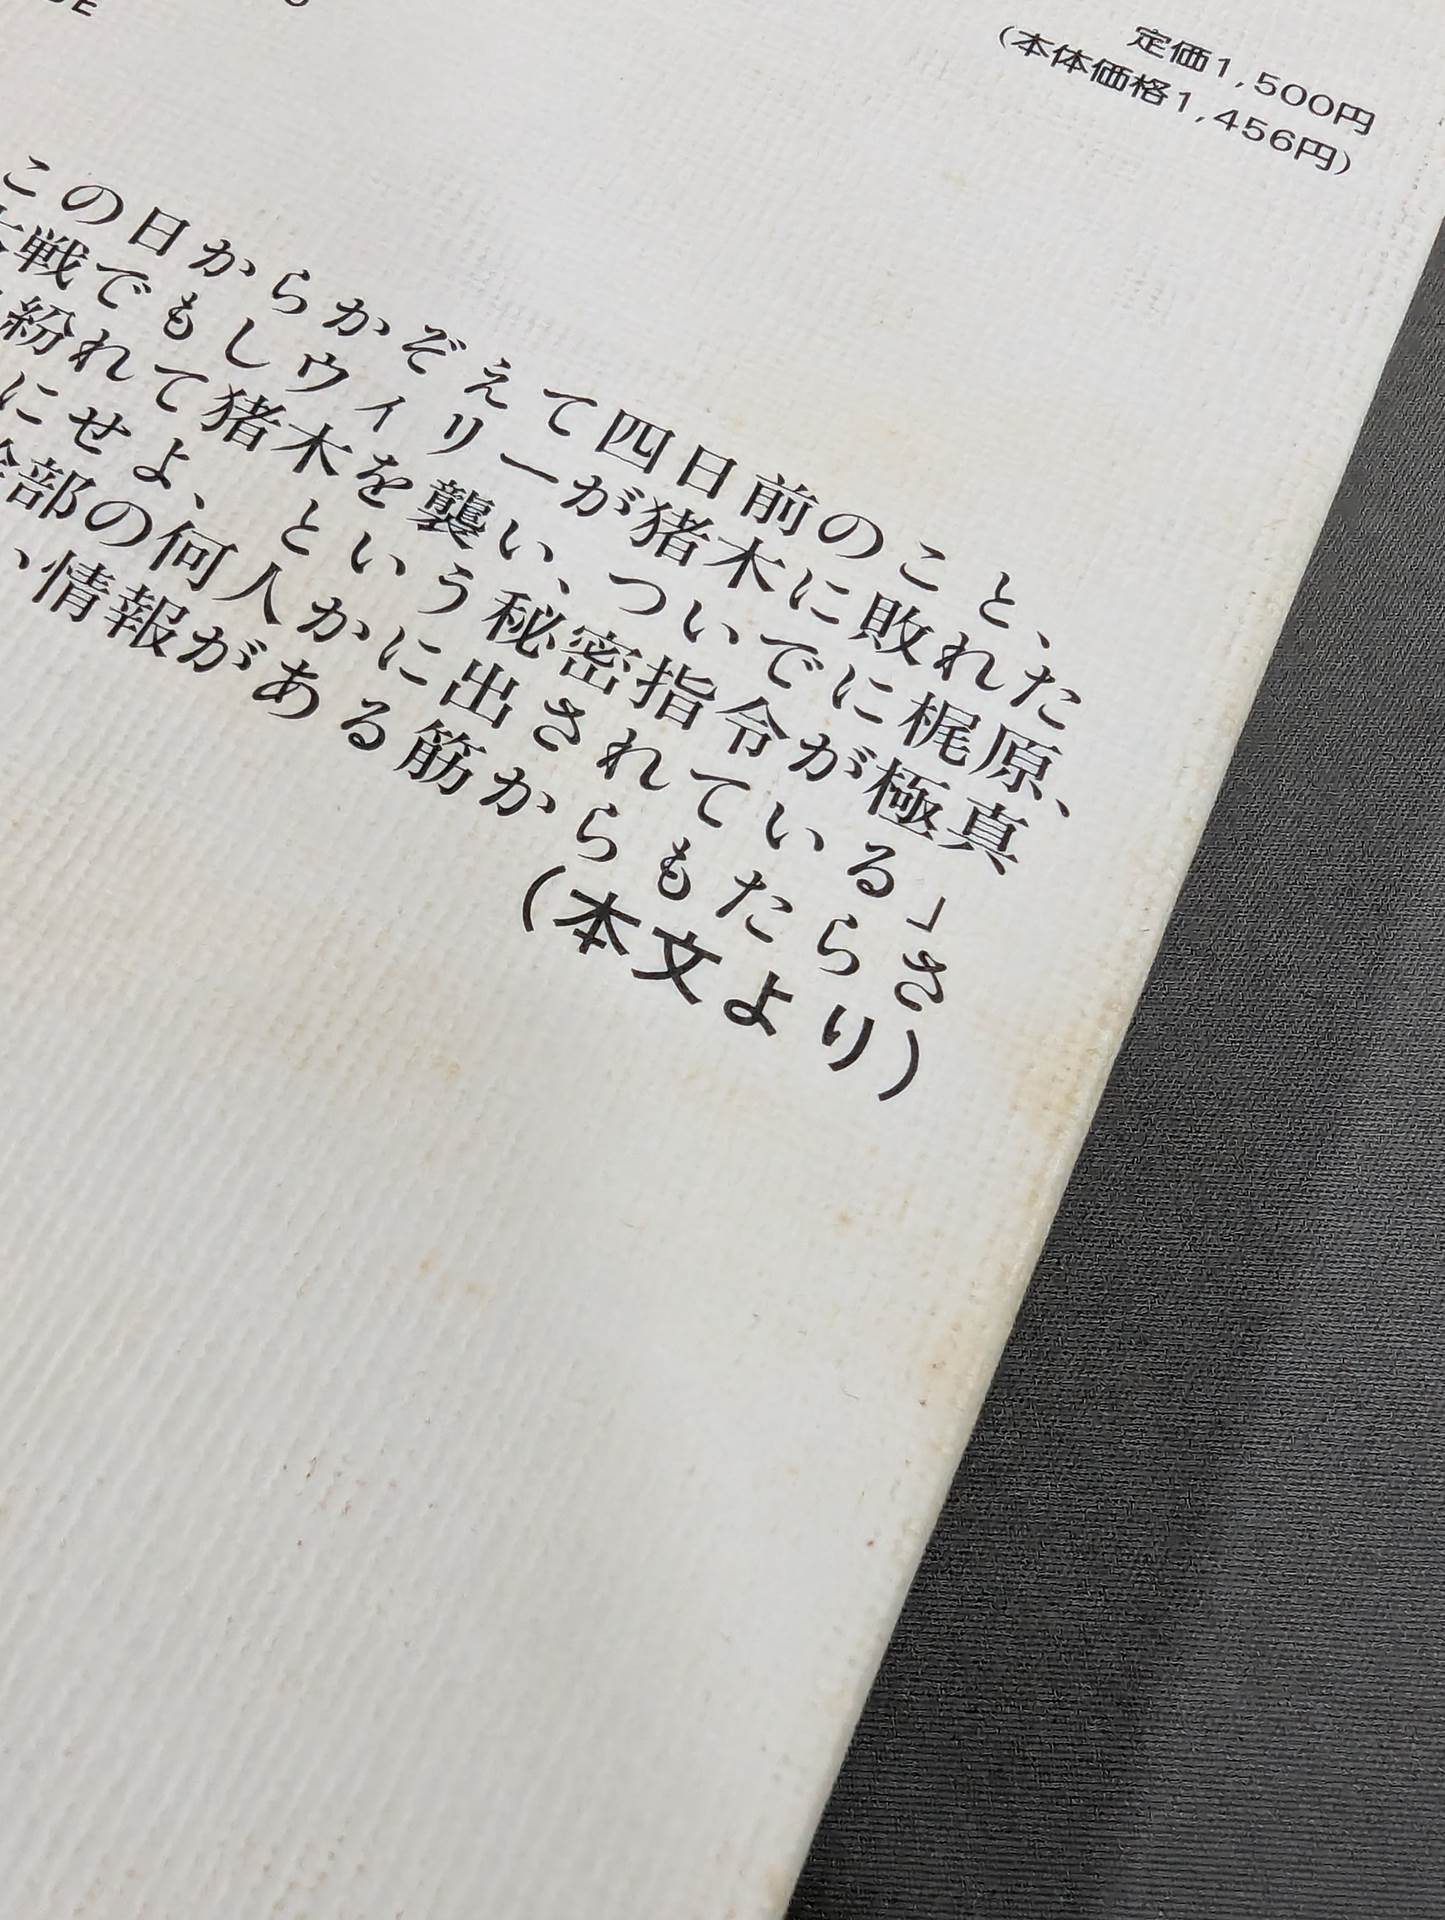 定価1,500円
(本体価格1,456円)
この日からかぞえて四日前のこと、
戦でもしウィリーが猪木に敗れた
紛れて猪木を襲い、ついでに梶原、
にせよ、という秘密指令が極真
部の何人かに出されている」さ
、情報がある筋からもたらさ
(本文より)